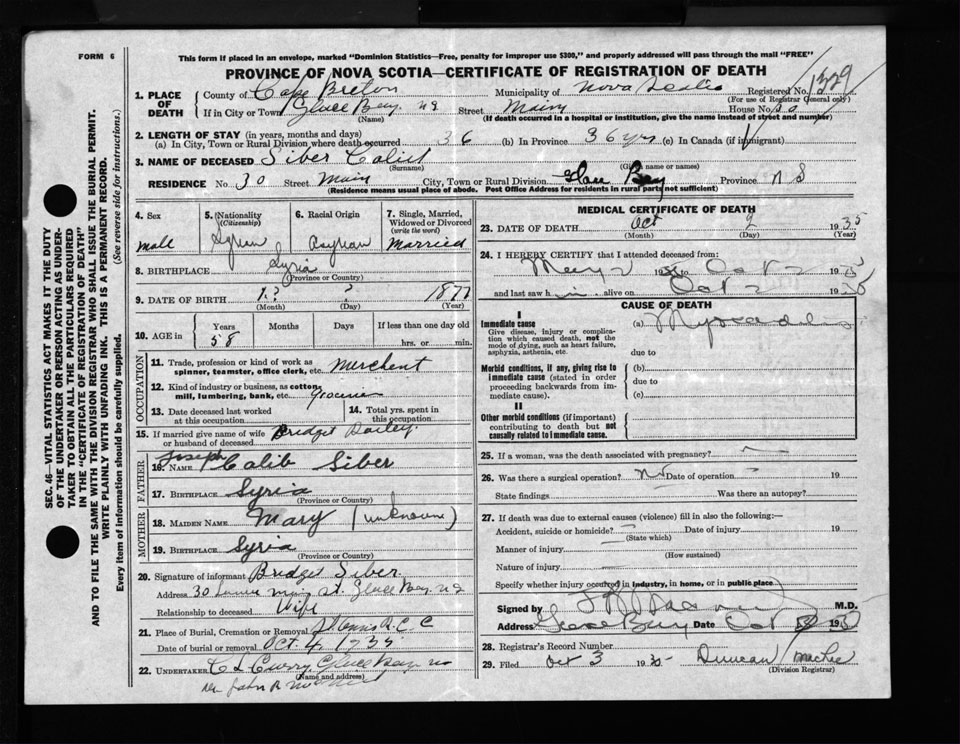 FORM 6
This form if placed in an envelope, marked "Dominion Statistics—Free, penalty for improper use $300," and properly addressed will pass through the mail "FREE"
PROVINCE OF NOVA SCOTIA—CERTIFICATE OF REGISTRATION OF DEATH
1329
SEC. 46—VITAL STATISTICS ACT MAKES IT THE DUTY
OF THE UNDERTAKER OR PERSON ACTING AS UNDER-
TAKER TO OBTAIN ALL THE PARTICULARS REQUIRED
IN THE "CERTIFICATE OF REGISTRATION OF DEATH"
AND TO FILE THE SAME WITH THE DIVISION REGISTRAR WHO SHALL ISSUE THE BURIAL PERMIT.
WRITE PLAINLY WITH UNFADING INK. THIS IS A PERMANENT RECORD.
Every item of information should be carefully supplied. (See reverse side for instructions.)
1. PLACE OF DEATH
County of Cape Breton Municipality of Nova Scotia Registered No.
(For use of Registrar General only)
If in City or Town Glace Bay. NS Street Main House No. 30
(Name) (If death occurred in a hospital or institution, give the name instead of street and number)
2. LENGTH OF STAY (in years, months and days)
(a) In City, Town or Rural Division where death occurred 36 (b) In Province 36 yrs (c) In Canada (if immigrant)
3. NAME OF DECEASED Siber
(Surname) (Given name or names)
RESIDENCE No. 30 Street Main City, Town or Rural Division Bay Province N S
(Residence means usual place of abode. Post Office Address for residents in rural parts not sufficient)
4. Sex
male
5. Nationality
(Citizenship)
Syrian
6. Racial Origin
7. Single, Married, Widowed or Divorced
(write the word)
Married
8. BIRTHPLACE Syria
(Province or Country)
9. DATE OF BIRTH ? ? 1877
(Month) (Day) (Year)
10. AGE in
Years Months Days If less than one day old
58 hrs. or min.
OCCUPATION
11. Trade, profession or kind of work as
spinner, teamster, office clerk, etc. Merchent
12. Kind of industry or business, as cotton
mill, lumbering, bank, etc.
13. Date deceased last worked
at this occupation
14. Total yrs. spent in
this occupation
15. If married give name of wife
or husband of deceased Bridget Dailey.
FATHER
Joseph
16. NAME Calib Siber
17. BIRTHPLACE Syria
(Province or Country)
MOTHER
18. MAIDEN NAME Mary (unknown)
19. BIRTHPLACE Syria
(Province or Country)
20. Signature of informant Bridget Siber
Address 30 Main St. Glace Bay. NS
Relationship to deceased Wife
21. Place of Burial, Cremation or Removal R. C. C
Date of burial or removal Oct 4, 1935
22. UNDERTAKER C L Curry, Glace Bay. NS
(Name and address)
MEDICAL CERTIFICATE OF DEATH
23. DATE OF DEATH Oct 2 1935
(Month) (Day) (Year)
24. I HEREBY CERTIFY that I attended deceased from:
to Oct 2 1935
and last saw him alive on Oct 2 1935
CAUSE OF DEATH
I
Immediate cause
Give disease, injury or complica-
tion which caused death, not the
mode of dying, such as heart failure,
asphyxia, asthenia, etc.
(a)
due to
Morbid conditions, if any, giving rise to
immediate cause (stated in order
proceeding backwards from im-
mediate cause).
(b)
due to
(c)
II
Other morbid conditions (if important)
contributing to death but not
causally related to immediate cause.
25. If a woman, was the death associated with pregnancy?
26. Was there a surgical operation? No Date of operation 19
State findings Was there an autopsy?
27. If death was due to external causes (violence) fill in also the following:—
Accident, suicide or homicide? Date of injury 19
(State which)
Manner of injury
(How sustained)
Nature of injury
Specify whether injury occurred in industry, in home, or in public place
Signed by M.D.
Address Glace Bay Date Oct 3 1935
28. Registrar's Record Number
29. Filed Oct 3 1935 Duncan
(Division Registrar)